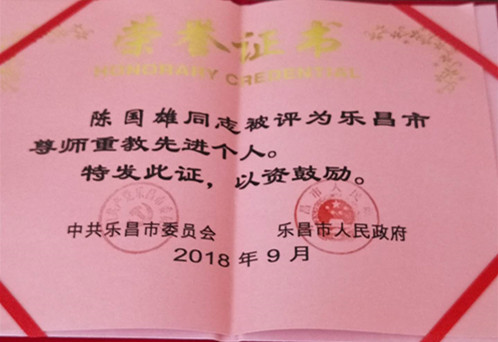 荣誉证书
HONORARY CREDENTIAL
陈国雄同志被评为乐昌市
尊师重教先进个人。
特发此证，以资鼓励。
中共乐昌市委员会 乐昌市人民政府
2018年9月